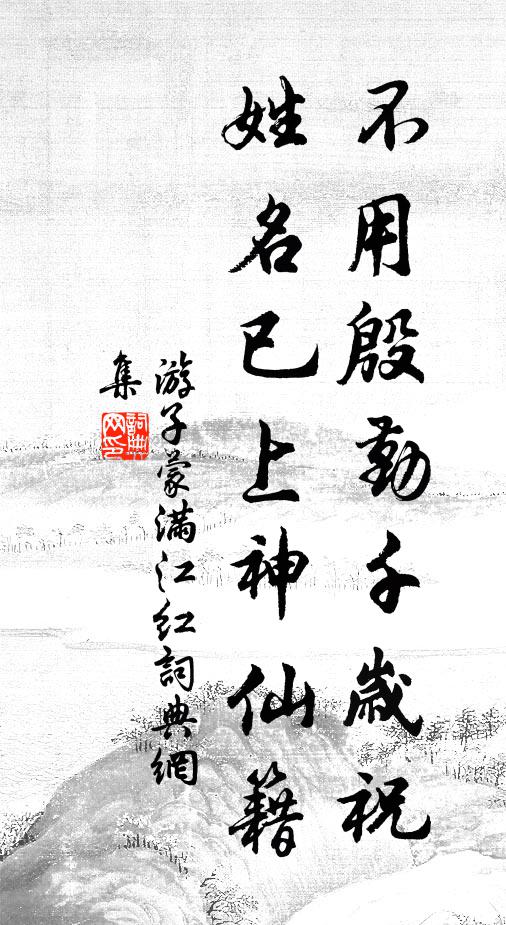 不用殷勤千歲祝
姓名已上神仙籍
游子蒙滿江红詞典網
集
詞典网印